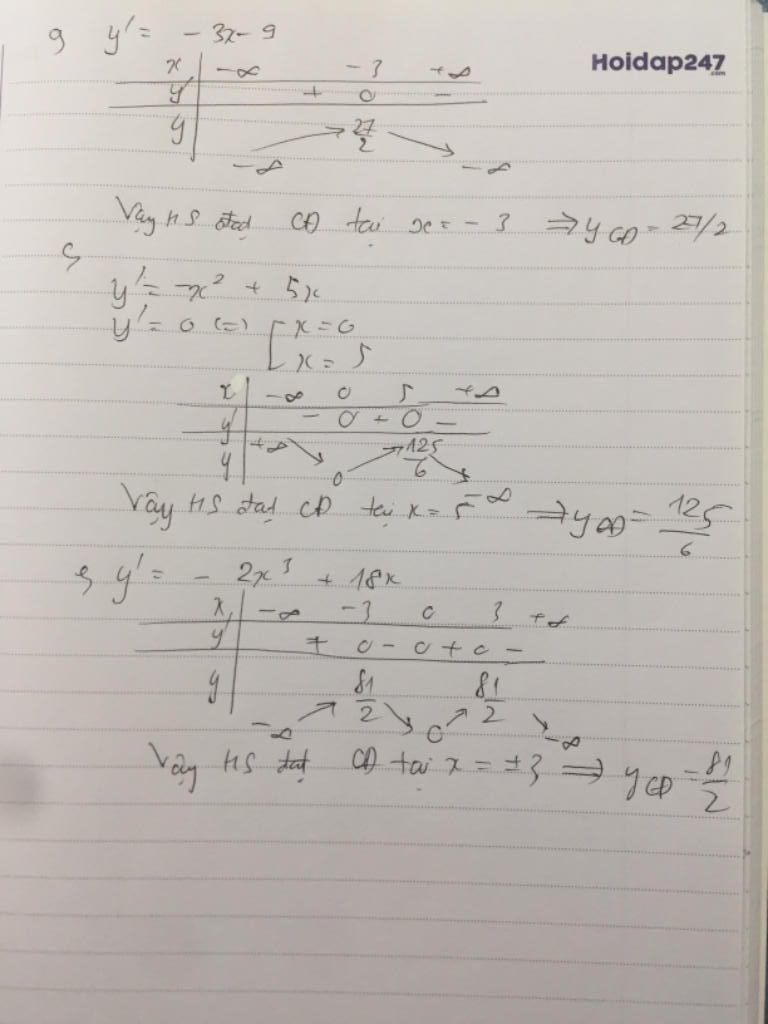 g y' = - 3x - 9
Hoidap247
.com
x -∞ - 3 +∞
y' + 0 -
y 27/2
-∞ -∞
Vậy HS đạt CĐ tại x = - 3 ⇒ y CĐ = 27/2
y' = -x² + 5x
y' = 0 (=) [ x = 0
x = 5
x -∞ 0 5 +∞
y' - 0 + 0 -
y +∞ 0 125/6 -∞
Vậy HS đạt CĐ tại x = 5 ⇒ y CĐ = 125/6
y' = - 2x³ + 18x
x -∞ -3 0 3 +∞
y' + 0 - 0 + 0 -
y 81/2 81/2
-∞ 0 -∞
Vậy HS đạt CĐ tại x = ±3 ⇒ y CĐ = 81/2